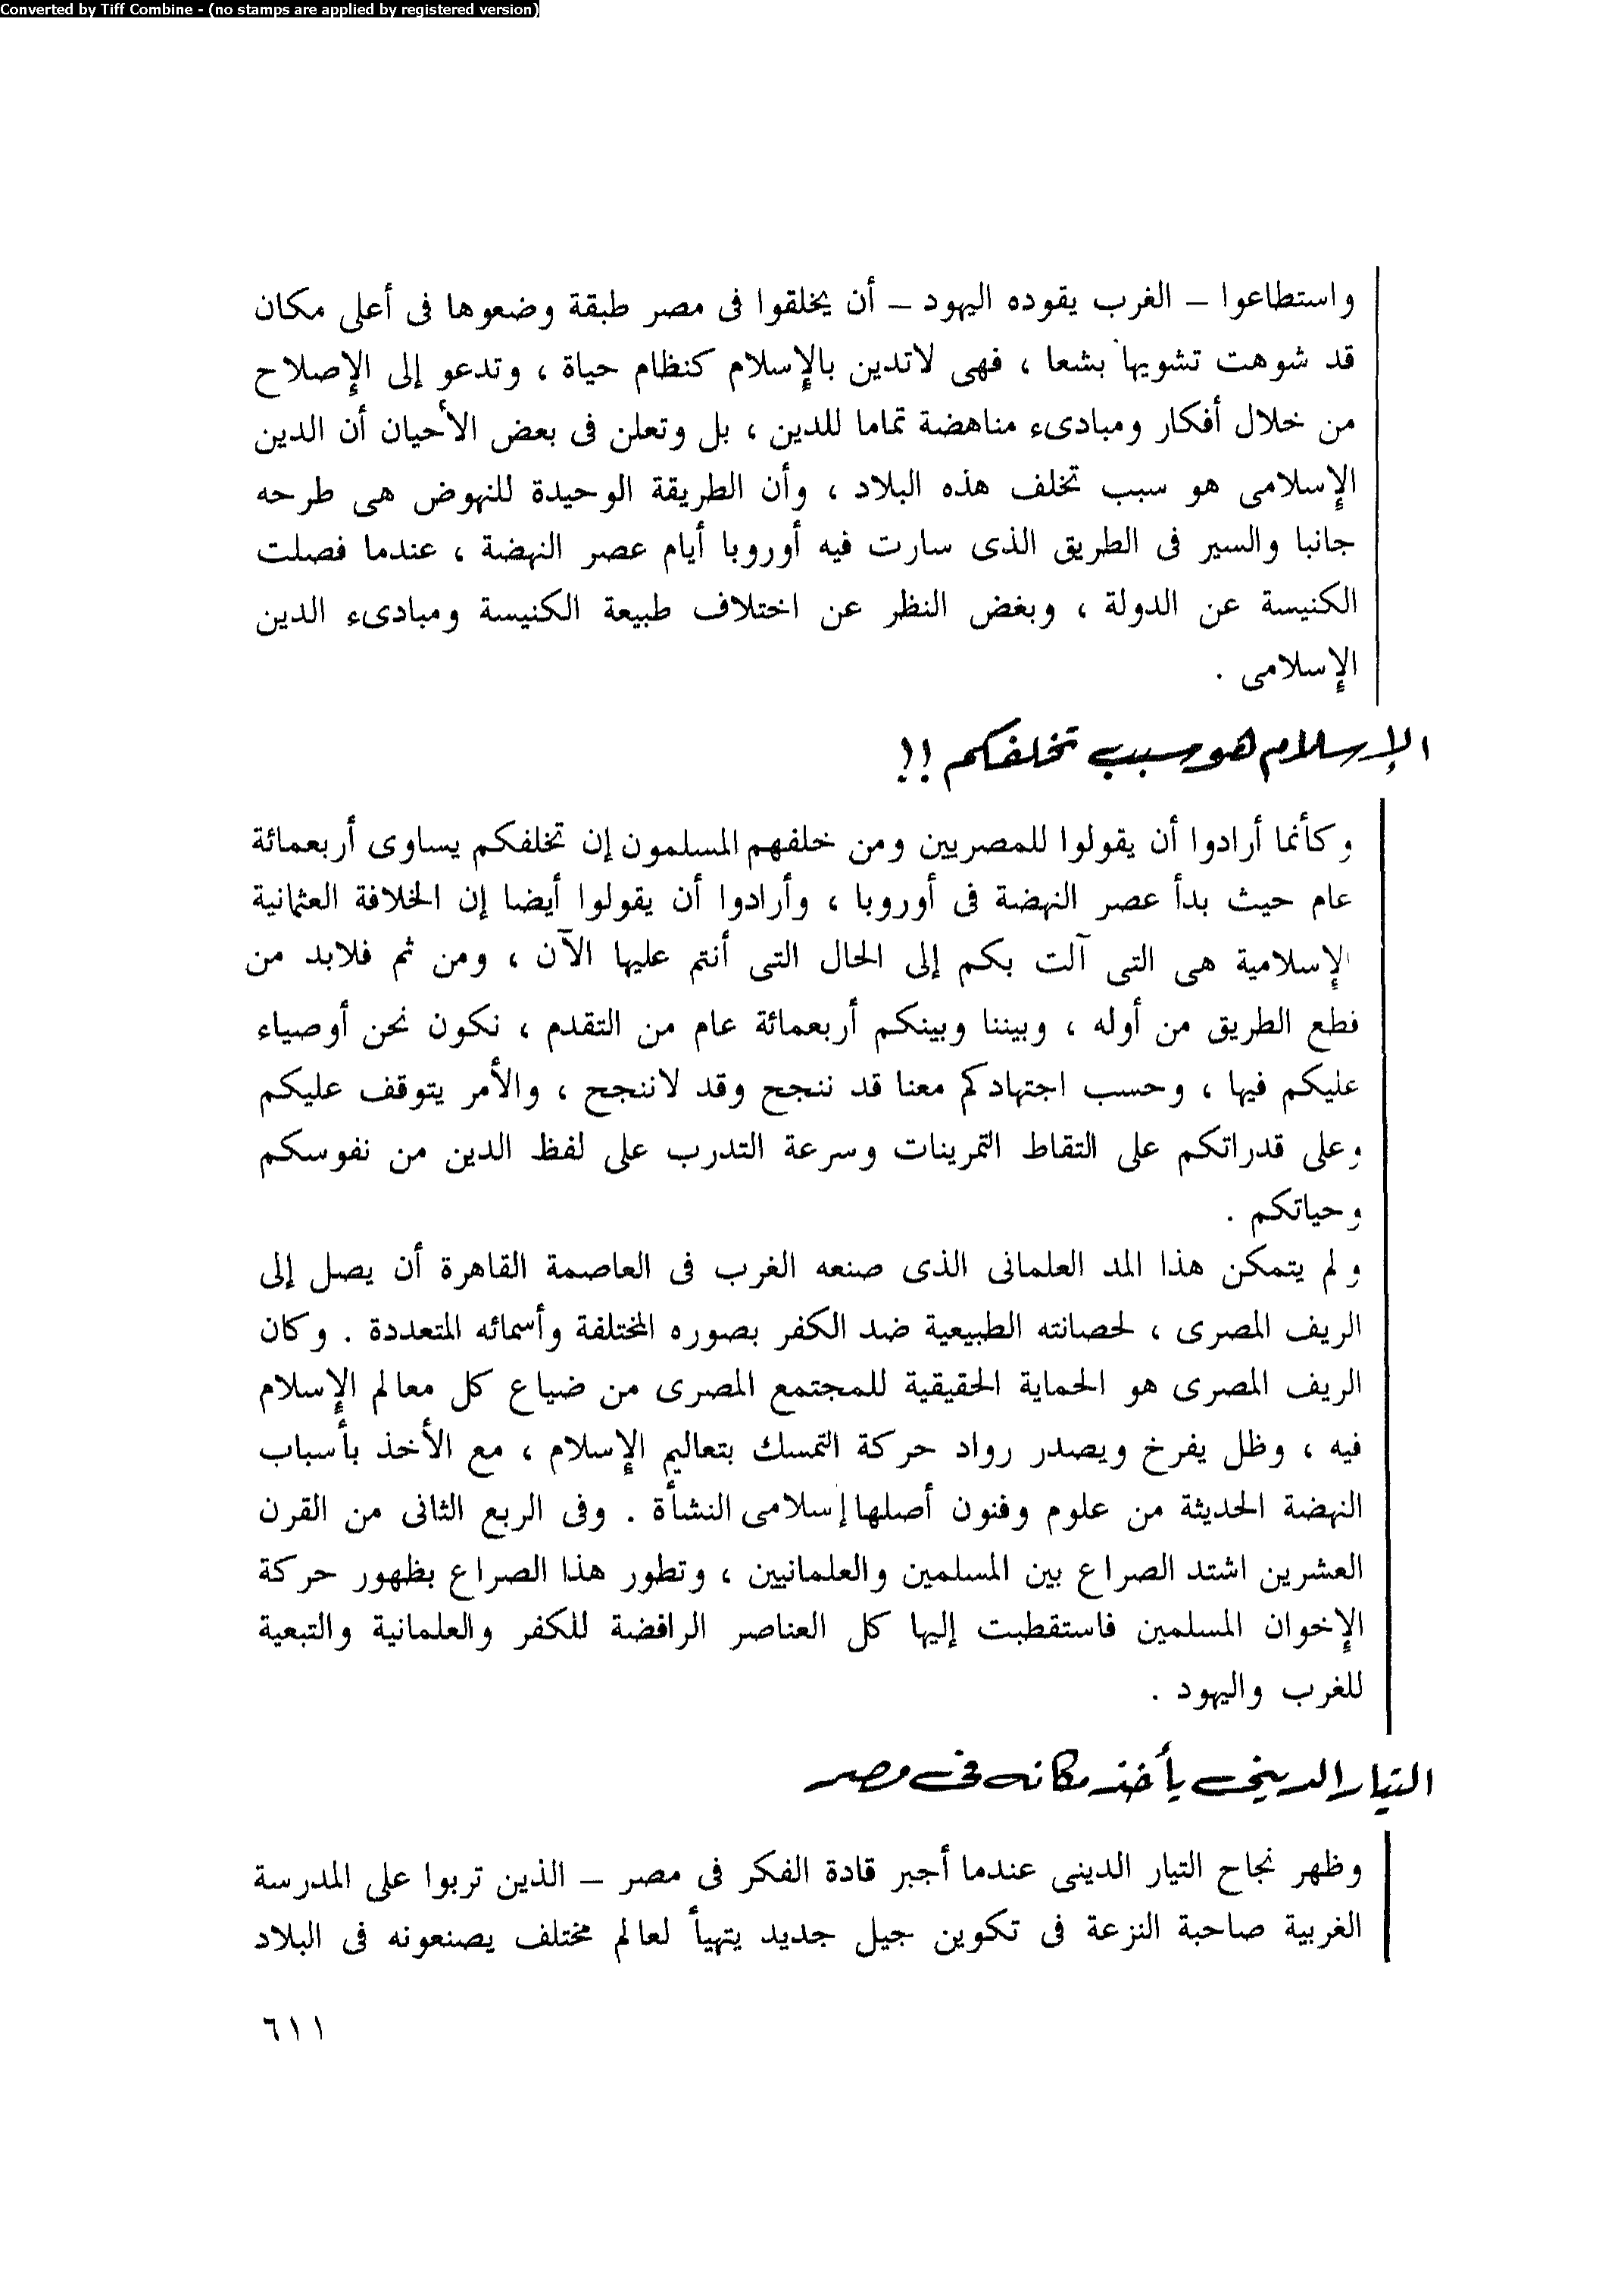 Converted by Tiff Combine - (no stamps are applied by registered version)
واستطاعوا – الغرب يقوده اليهود – أن يخلقوا فى مصر طبقة وضعوها فى أعلى مكان
قد شوهت تشويها بشعا ، فهى لاتدين بالإسلام كنظام حياة ، وتدعو إلى الإصلاح
من خلال أفكار ومبادىء مناهضة تماما للدين ، بل وتعلن فى بعض الأحيان أن الدين
الإسلامى هو سبب تخلف هذه البلاد ، وأن الطريقة الوحيدة للنهوض هى طرحه
جانبا والسير فى الطريق الذى سارت فيه أوروبا أيام عصر النهضة ، عندما فصلت
الكنيسة عن الدولة ، وبغض النظر عن اختلاف طبيعة الكنيسة ومبادىء الدين
الإسلامى .
الإسلام هو سبب تخلفكم !!
وكأنما أرادوا أن يقولوا للمصريين ومن خلفهم المسلمون إن تخلفكم يساوى أربعمائة
عام حيث بدأ عصر النهضة فى أوروبا ، وأرادوا أن يقولوا أيضا إن الخلافة العثمانية
الإسلامية هى التى آلت بكم إلى الحال التى أنتم عليها الآن ، ومن ثم فلابد من
قطع الطريق من أوله ، وبيننا وبينكم أربعمائة عام من التقدم ، نكون نحن أوصياء
عليكم فيها ، وحسب اجتهادكم معنا قد ننجح وقد لاننجح ، والأمر يتوقف عليكم
وعلى قدراتكم على التقاط التمرينات وسرعة التدرب على لفظ الدين من نفوسكم
وحياتكم .
ولم يتمكن هذا المد العلمانى الذى صنعه الغرب فى العاصمة القاهرة أن يصل إلى
الريف المصرى ، لحصانته الطبيعية ضد الكفر بصوره المختلفة وأسمائه المتعددة . وكان
الريف المصرى هو الحماية الحقيقية للمجتمع المصرى من ضياع كل معالم الإسلام
فيه ، وظل يفرخ ويصدر رواد حركة التمسك بتعاليم الإسلام ، مع الأخذ بأسباب
النهضة الحديثة من علوم وفنون أصلها إسلامى النشأة . وفى الربع الثانى من القرن
العشرين اشتد الصراع بين المسلمين والعلمانيين ، وتطور هذا الصراع بظهور حركة
الإخوان المسلمين فاستقطبت إليها كل العناصر الرافضة للكفر والعلمانية والتبعية
للغرب واليهود .
التيار الدينى يأخذ مكانه فى مصر
وظهر نجاح التيار الدينى عندما أجبر قادة الفكر فى مصر – الذين تربوا على المدرسة
الغربية صاحبة النزعة فى تكوين جيل جديد يتهيأ لعالم مختلف يصنعونه فى البلاد
٦١١